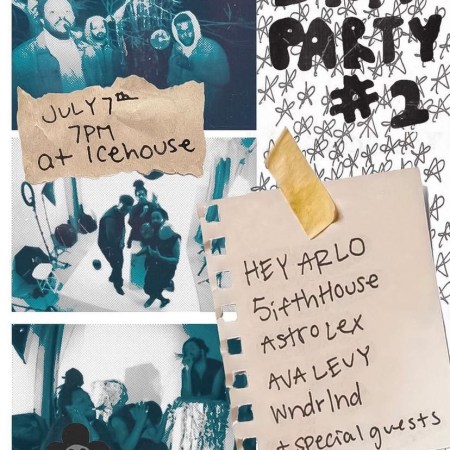 PARTY
#2
JULY 7th
7PM
at Icehouse
HEY ARLO
5ifthHouse
Astro Lex
AVA LEVY
Wndrlnd
+ special guests